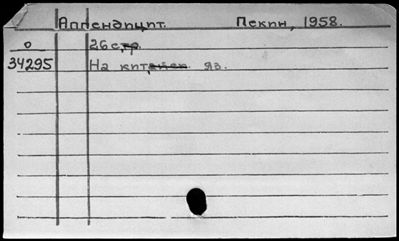 Аппендицит. Пекин, 1958.
0 26 стр.
34295 На китайск. яз.